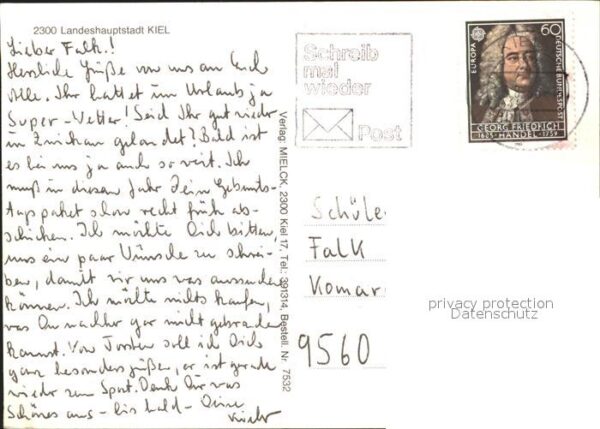 2300 Landeshauptstadt KIEL
Lieber Falk!
Herzliche Grüße von uns an Euch
Alle. Ihr hattet im Urlaub ja
Super-Wetter! Seid Ihr gut wieder
in Zwickau gelandet? Bald ist
es bei uns ja auch so weit. Ich
muß in diesem Jahr Dein Geburts-
tagspaket schon recht früh ab-
schicken. Ich möchte Dich bitten,
uns ein paar Wünsche zu schrei-
ben, damit wir uns was aussuchen
können. Ich möchte nichts kaufen,
was Du nachher gar nicht gebrauchen
kannst. Von Torsten soll ich Dich
ganz besonders grüßen, er ist gerade
wieder zum Sport. Denk Dir was
Schönes aus - bis bald - Deine
Verlag: MIELCK, 2300 Kiel 17, Tel.: 391314, Bestell. Nr. 7532
Schreib
mal
wieder
Post
EUROPA
60
DEUTSCHE BUNDESPOST
GEORG FRIEDRICH
1685 HÄNDEL 1759
Schüle
Falk
Komar
9560
privacy protection
Datenschutz